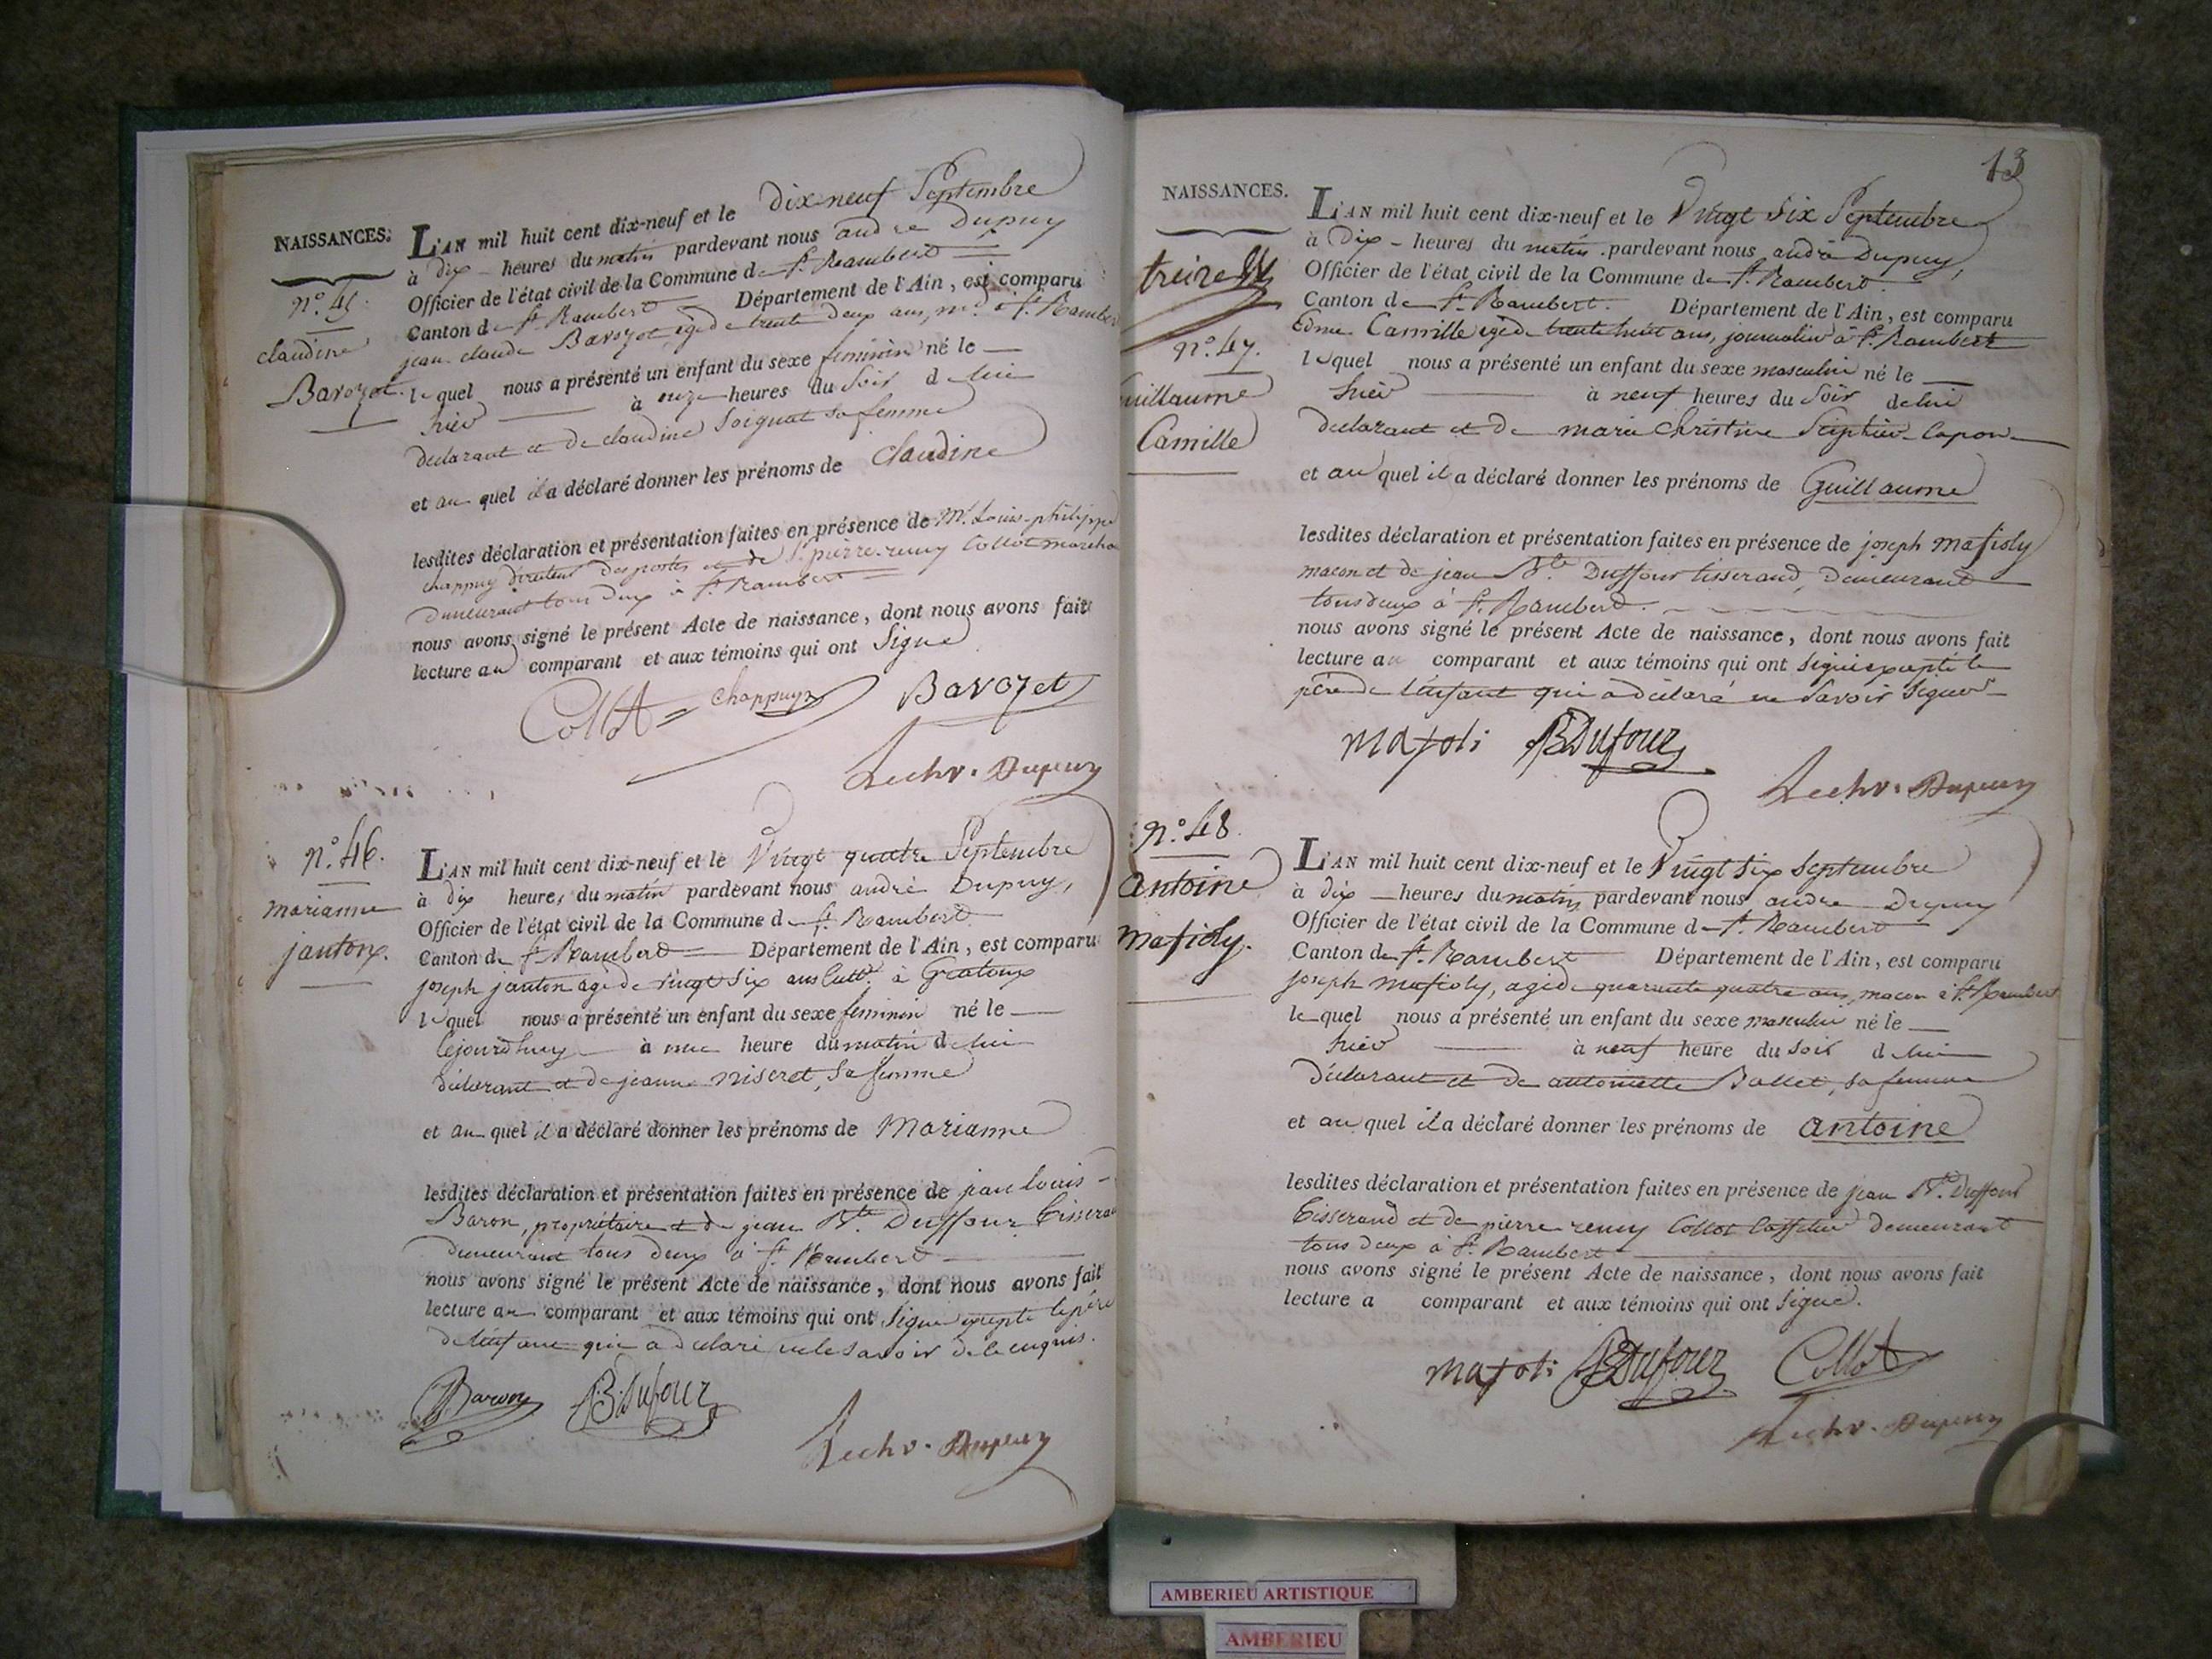 NAISSANCES.
n.º 45.
claudine
Bavozet.
L'AN mil huit cent dix-neuf et le Dix-neuf Septembre
à dix heures du matin pardevant nous andré Dupuy
Officier de l'état civil de la Commune de St. Rambert
Canton de St. Rambert Département de l'Ain, est comparu
jean claude Bavozet agé de trente deux ans, à St. Rambert
lequel nous a présenté un enfant du sexe feminin né le
hier à onze heures du Soir de lui
declarant et de claudine Soignat sa femme
et au quel il a déclaré donner les prénoms de Claudine
lesdites déclaration et présentation faites en présence de Mr. Louis-philippe
chappuy directeur des postes et de Sr. pierre-remy Collot marcha
demeurant tous deux à St. Rambert
nous avons signé le présent Acte de naissance, dont nous avons fait
lecture au comparant et aux témoins qui ont Signé
Collot chappuys Bavozet
Lechr. Dupuy
n.º 46.
marianne
janton.
L'AN mil huit cent dix-neuf et le Vingt quatre Septembre
à dix heures du matin pardevant nous andré Dupuy,
Officier de l'état civil de la Commune de St. Rambert
Canton de St. Rambert Département de l'Ain, est comparu
joseph janton agé de vingt Six ans Cultr. à Gratoux
lequel nous a présenté un enfant du sexe feminin né le
cejourdhuy à une heure du matin de lui
déclarant et de jeanne niseret, Sa femme
et au quel il a déclaré donner les prénoms de Marianne
lesdites déclaration et présentation faites en présence de jean louis
Baron, propriétaire et de jean Bte. Duffour tissera
demeurant tous deux à St. Rambert
nous avons signé le présent Acte de naissance, dont nous avons fait
lecture au comparant et aux témoins qui ont Signé excepté le père
de l'enfant qui a declaré ne le Savoir de ce enquis.
Baron JBDufour
Lechr. Dupuy
13
NAISSANCES.
treize
n.º 47.
uillaume
Camille
L'AN mil huit cent dix-neuf et le Vingt Six Septembre
à Dix heures du matin pardevant nous andré Dupuy,
Officier de l'état civil de la Commune de St. Rambert.
Canton de St. Rambert. Département de l'Ain, est comparu
Edme Camille agé de trente huit ans, journalier à St. Rambert
lequel nous a présenté un enfant du sexe masculin né le
hier à neuf heures du Soir de lui
declarant et de marie Christine
et au quel il a déclaré donner les prénoms de Guillaume
lesdites déclaration et présentation faites en présence de joseph Mafioly
macon et de jean Bte. Duffour tisserand, Demeurant
tous deux à St. Rambert.
nous avons signé le présent Acte de naissance, dont nous avons fait
lecture au comparant et aux témoins qui ont Signé excepté le
père de l'enfant qui a déclaré ne Savoir Signer
Majoli JBDufour
Lechr. Dupuy
n.º 48.
antoine
Mafioly.
L'AN mil huit cent dix-neuf et le Vingt Six Septembre
à dix heures du matin pardevant nous andré Dupuy
Officier de l'état civil de la Commune de St. Rambert
Canton de St. Rambert Département de l'Ain, est comparu
joseph Mafioly, agé de quarante quatre ans, macon à St. Rambert
lequel nous a présenté un enfant du sexe masculin né le
hier à neuf heure du Soir de lui
déclarant et de antoinette Ballet, sa femme
et au quel il a déclaré donner les prénoms de antoine
lesdites déclaration et présentation faites en présence de jean Bte. Duffour
tisserand et de pierre remy Collot demeurant
tous deux à St. Rambert
nous avons signé le présent Acte de naissance, dont nous avons fait
lecture a comparant et aux témoins qui ont Signé.
Majoli JBDufour Collot
Lechr. Dupuy
AMBERIEU ARTISTIQUE
AMBERIEU